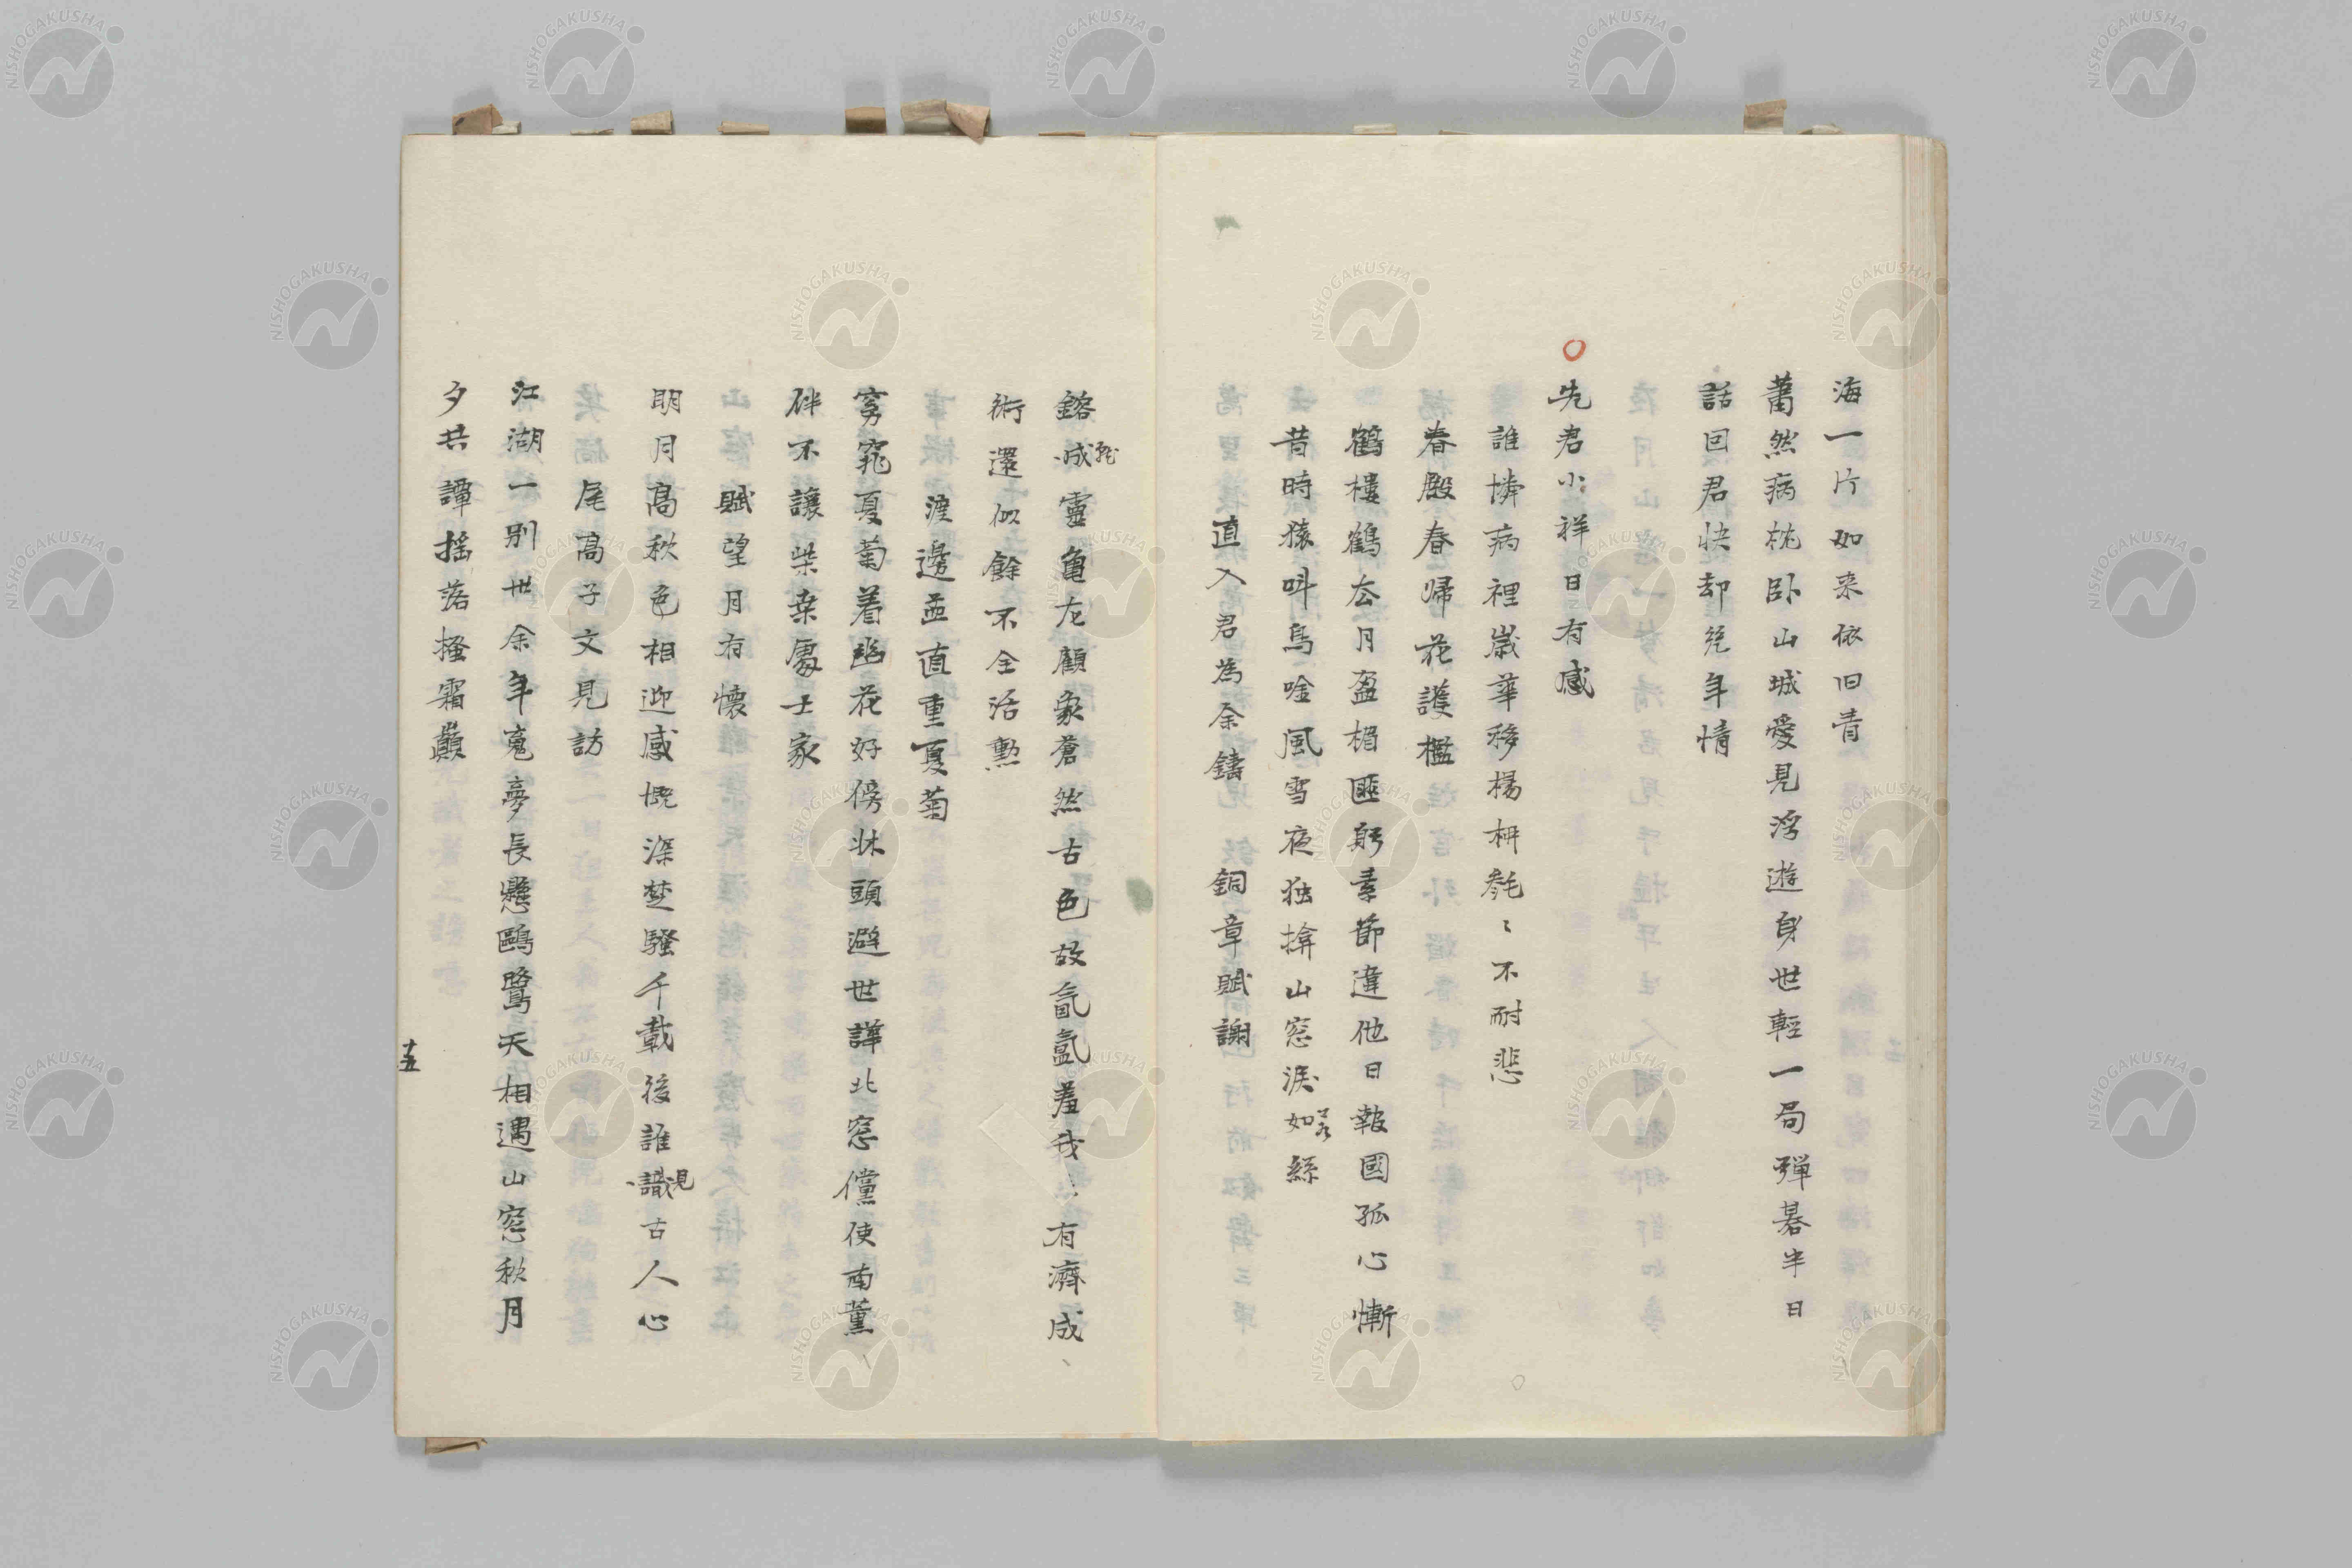 海一片如来依旧青
蕭然病枕臥山城愛見浮遊身世輕一局彈碁半日
話回君快却老年情
先君小祥日有感
誰憐病裡歲華移楊柳毿〻不耐悲
春殿春歸花護檻
鶴樓鶴去月盈楣匪躬素節違他日報國孤心慚
昔時猿叫鳥啼風雪夜独揜山窓淚如絲
直入君為余鑄 銅章賦謝
鎔成靈亀左顧象蒼然古色故氤氳羞我 有濟成
術還似餘不全活勲
渡邊孟直重夏菊
窈窕夏菊着幽花好傍牀頭避世譁北窓儻使南薫
伴不讓柴桑處士家
賦望月有懷
明月高秋色相迎感慨深楚騷千載後誰識見古人心
尾高子文見訪
江湖一別卅余年鬼夢長懸鷗鷺天相遇山窓秋月
夕共譚搖落搔霜顛
十五
NISHOGAKUSHA